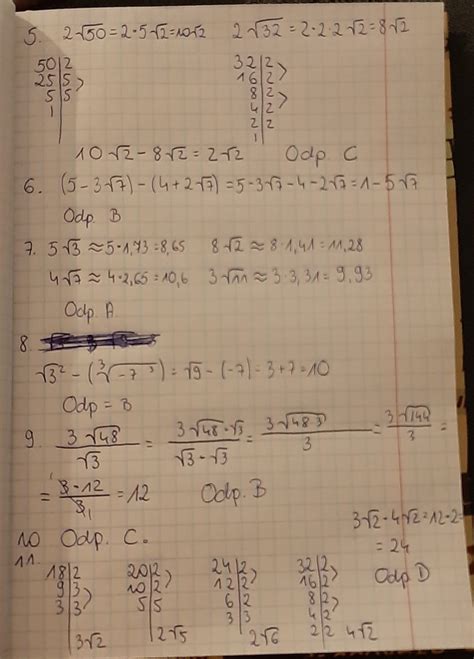 5. 2√50=2·5√2=10√2 2√32=2·2·2√2=8√2
50|2 32|2
25|5 16|2
5|5 8|2
1 4|2
2|2
1
10√2-8√2=2√2 Odp C
6. (5-3√7)-(4+2√7)=5-3√7-4-2√7=1-5√7
Odp. B
7. 5√3≈5·1,73=8,65 8√2≈8·1,41=11,28
4√7≈4·2,65=10,6 3√11≈3·3,31=9,93
Odp. A
8.
√3²-(³√-7³)=√9-(-7)=3+7=10
Odp = B
9. 3√48/√3 = 3√48·√3/√3-√3 = 3√48·3/3 = 3√144/3 =
= 3·12/3 = 12 Odp. B
10 Odp. C. 3√2·4√2=12·2=
= 24
11. Odp D
18|2 20|2 24|2 32|2
9|3 10|2 12|2 16|2
3|3 5|5 6|2 8|2
3|3 4|2
2|2
3√2 2√5 2√6 4√2